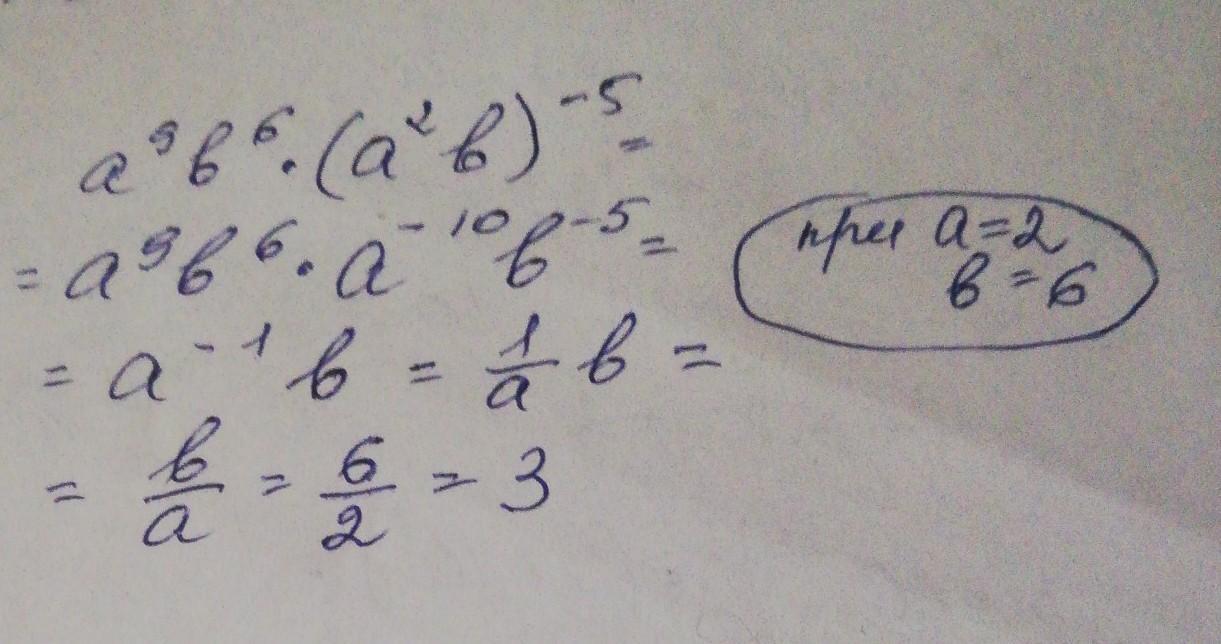 a⁹b⁶·(a²b)⁻⁵=
=a⁹b⁶·a⁻¹⁰b⁻⁵=
при a=2
b=6
=a⁻¹b=1/a b=
=b/a=6/2=3